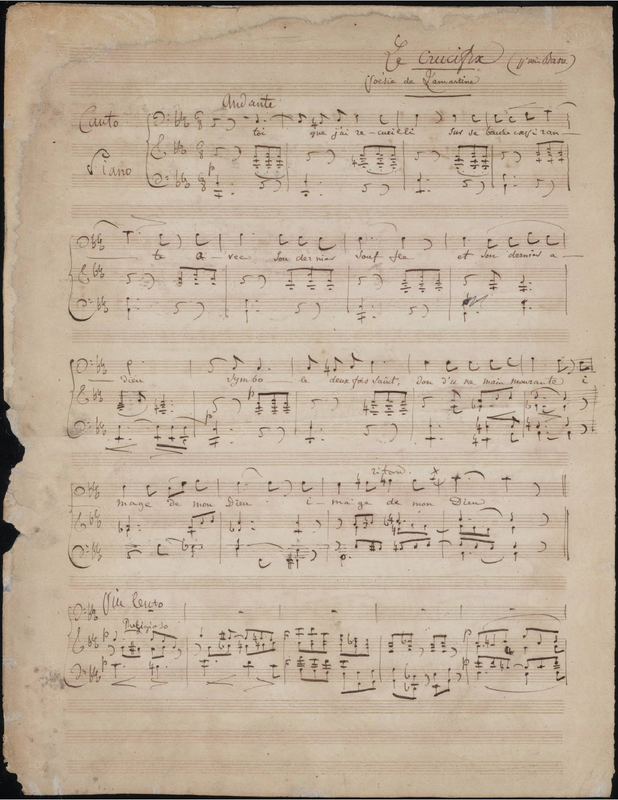 Le Crucifix (pr une Basse)
Poésie de Lamartine
Andante
Canto
toi que j'ai re-cueilli sur sa bouche expiran—
Piano
— te a-vec son dernier souf fle et son dernier a—
— dieu symbo le deux fois saint, don d'u ne main mourante i
ritard.
mage de mon Dieu i-ma-ge de mon Dieu
Piu lento
Religioso